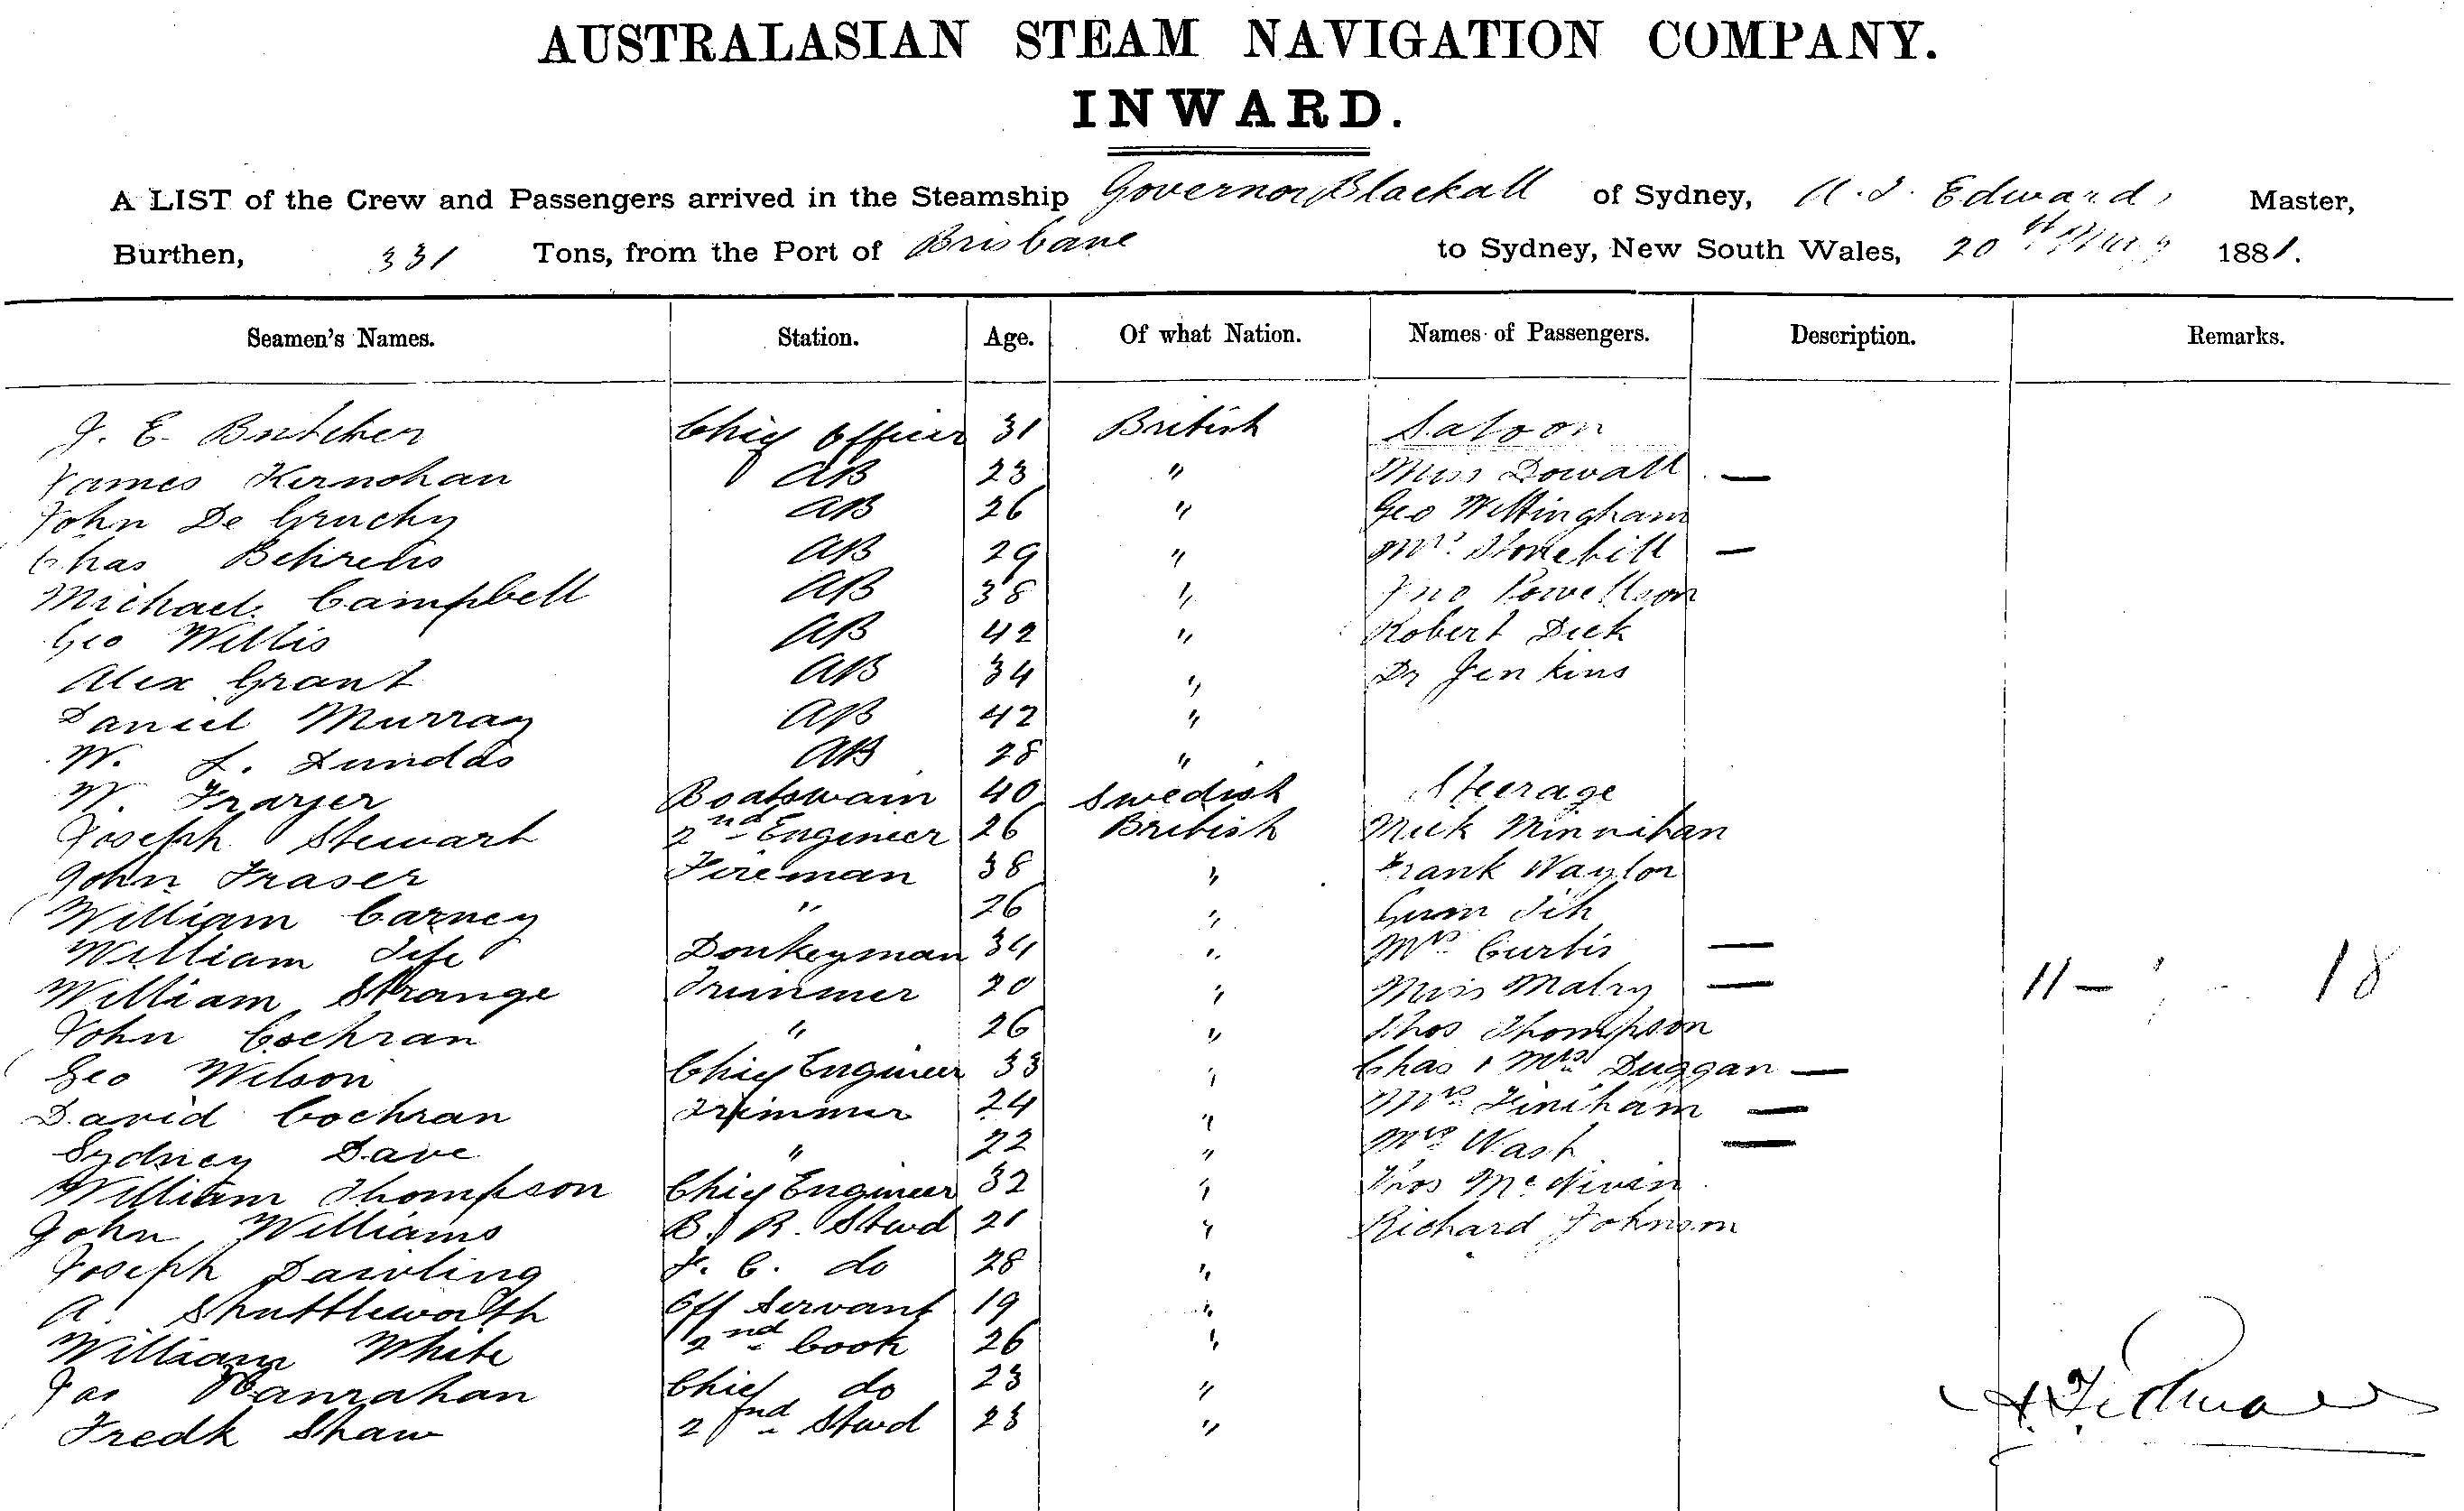 AUSTRALASIAN STEAM NAVIGATION COMPANY.
INWARD.
A LIST of the Crew and Passengers arrived in the Steamship Governor Blackall of Sydney, Edwards Master,
Burthen, 331 Tons, from the Port of Brisbane to Sydney, New South Wales, 20th 1881.
Seamen's Names. Station. Age. Of what Nation. Names of Passengers. Description. Remarks.
J. E. Butcher Chief Officer 31 British Saloon
James Kernohan AB 23 " Miss Dowall —
John De Gruchy AB 26 " Geo Wittingham
Chas Behrens AB 29 " Stonehill —
Michael Campbell AB 38 " Jno Powellson
Geo Willis AB 42 " Robert Dick
Alex Grant AB 34 " Dr Jenkins
Daniel Murray AB 42 "
W. L. Dundas AB 28 "
W. Frayer Boatswain 40 Swedish Steerage
Joseph Stewart 2nd Engineer 26 British Mick Minnihan
John Fraser Fireman 38 " Frank Waylon
William Carney " 26 "
William Donkeyman 34 " Mrs Curtis —
William Strange Trimmer 20 " Miss —
John Cochran " 26 " Thos Thompson 11 — 18
Geo Wilson Chief Engineer 33 " Chas & Mrs Duggan —
David Cochran Trimmer 24 " Mrs Finiham —
Sydney Dave " 22 " Mrs —
William Thompson Chief Engineer 32 " Thos McNiven
John Williams B. R. Stwd 21 " Richard Johnson
Joseph Dawling F. C. do 28 "
A. Shuttleworth Off Servant 19 "
William White 2nd Cook 26 "
Jas Hanrahan Chief do 23 "
Fredk Shaw 2nd Stwd 23 "